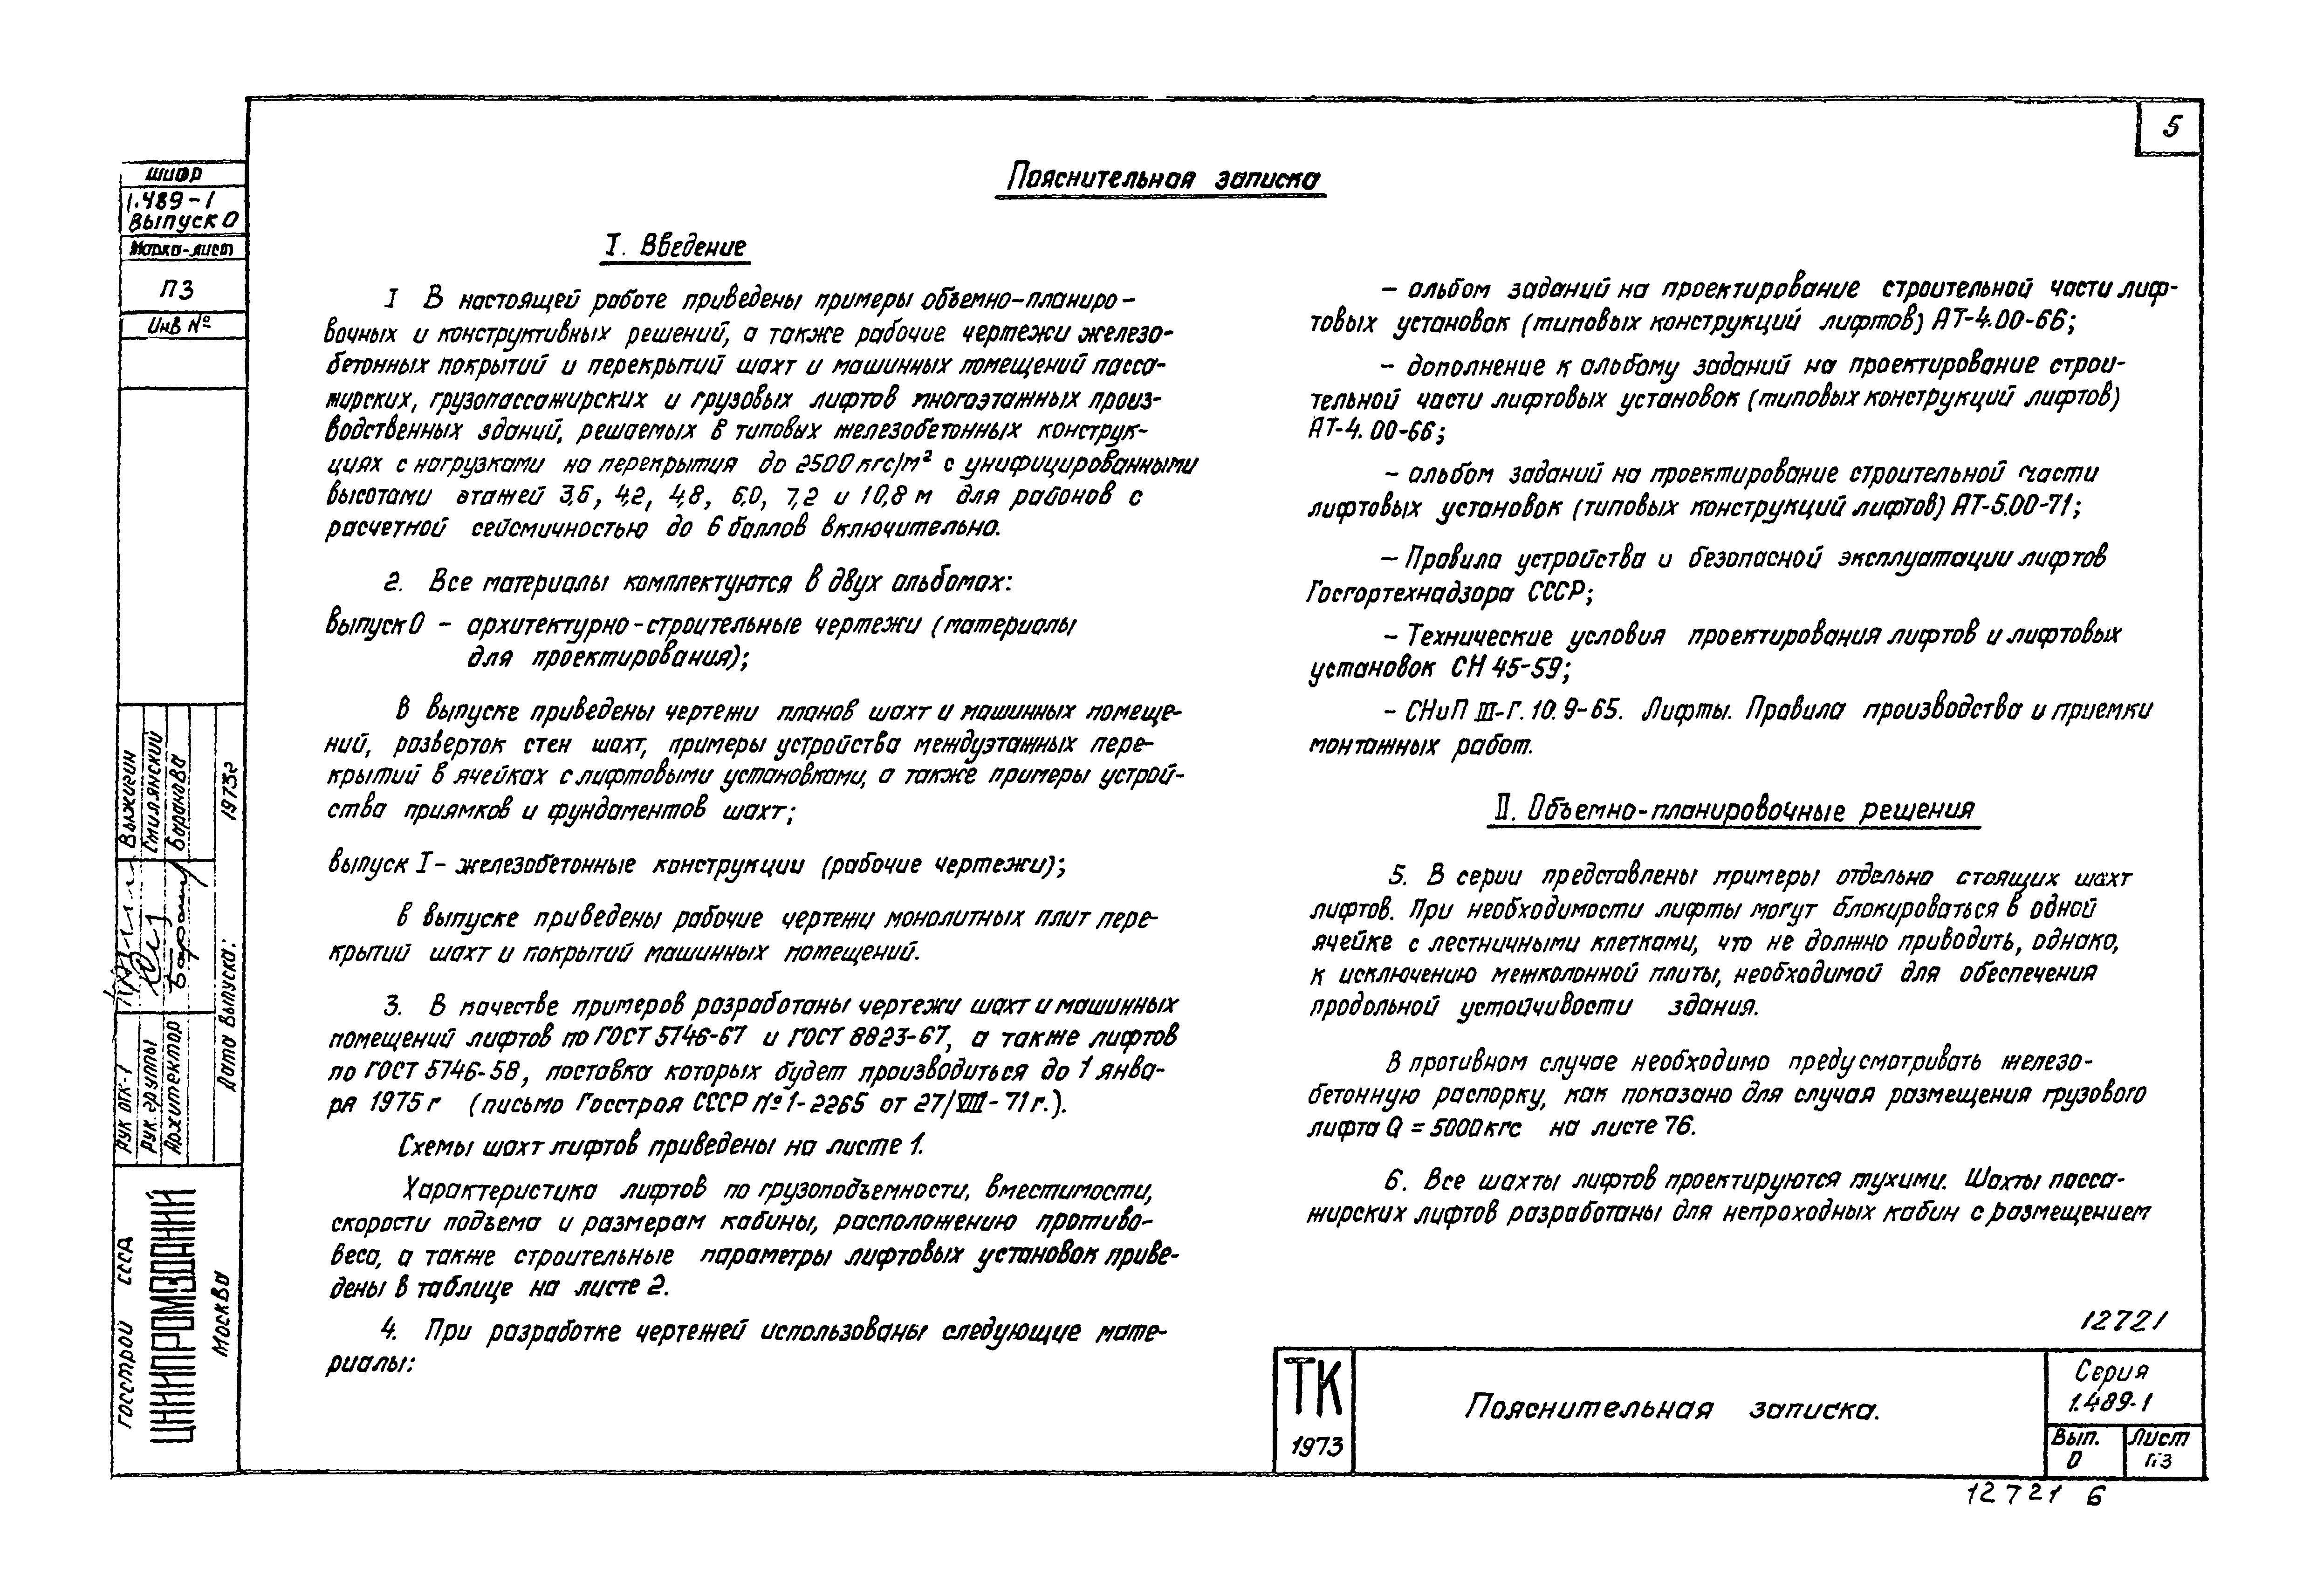 5
Пояснительная записка
I. Введение
I В настоящей работе приведены примеры объемно-планиро-
вочных и конструктивных решений, а также рабочие чертежи железо-
бетонных покрытий и перекрытий шахт и машинных помещений пасса-
жирских, грузопассажирских и грузовых лифтов многоэтажных произ-
водственных зданий, решаемых в типовых железобетонных конструк-
циях с нагрузками на перекрытия до 2500 кгс/м² с унифицированными
высотами этажей 3,6, 4,2, 4,8, 6,0, 7,2 и 10,8 м для районов с
расчетной сейсмичностью до 6 баллов включительно.
2. Все материалы комплектуются в двух альбомах:
выпуск 0 - архитектурно-строительные чертежи (материалы
для проектирования);
В выпуске приведены чертежи планов шахт и машинных помеще-
ний, разверток стен шахт, примеры устройства междуэтажных пере-
крытий в ячейках с лифтовыми установками, а также примеры устрой-
ства приямков и фундаментов шахт;
выпуск I - железобетонные конструкции (рабочие чертежи);
в выпуске приведены рабочие чертежи монолитных плит пере-
крытий шахт и покрытий машинных помещений.
3. В качестве примеров разработаны чертежи шахт и машинных
помещений лифтов по ГОСТ 5746-67 и ГОСТ 8823-67, а также лифтов
по ГОСТ 5746-58, поставка которых будет производиться до 1 янва-
ря 1975 г (письмо Госстроя СССР № 1-2265 от 27/VIII-71 г.).
Схемы шахт лифтов приведены на листе 1.
Характеристика лифтов по грузоподъемности, вместимости,
скорости подъема и размерам кабины, расположению противо-
веса, а также строительные параметры лифтовых установок приве-
дены в таблице на листе 2.
4. При разработке чертежей использованы следующие мате-
риалы:
- альбом заданий на проектирование строительной части лиф-
товых установок (типовых конструкций лифтов) АТ-4.00-66;
- дополнение к альбому заданий на проектирование строи-
тельной части лифтовых установок (типовых конструкций лифтов)
АТ-4.00-66;
- альбом заданий на проектирование строительной части
лифтовых установок (типовых конструкций лифтов) АТ-5.00-71;
- Правила устройства и безопасной эксплуатации лифтов
Госгортехнадзора СССР;
- Технические условия проектирования лифтов и лифтовых
установок СН 45-59;
- СНиП III-Г. 10.9-65. Лифты. Правила производства и приемки
монтажных работ.
II. Объемно-планировочные решения
5. В серии представлены примеры отдельно стоящих шахт
лифтов. При необходимости лифты могут блокироваться в одной
ячейке с лестничными клетками, что не должно приводить, однако,
к исключению межколонной плиты, необходимой для обеспечения
продольной устойчивости здания.
В противном случае необходимо предусмотривать железо-
бетонную распорку, как показано для случая размещения грузового
лифта Q = 5000 кгс на листе 76.
6. Все шахты лифтов проектируются глухими. Шахты пасса-
жирских лифтов разработаны для непроходных кабин с размещением
12721
ТК
1973
Пояснительная записка.
Серия
1.489-1
Вып.
0
Лист
ПЗ
12721 6
шифр
1.489-1
выпуск 0
Марка-лист
ПЗ
Инв №
Рук ОТК-1 Выжигин
Рук. группы Стилянский
Архитектор Баранова
Дата выпуска: 1973г
ГОССТРОЙ СССР
ЦНИИПРОМЗДАНИЙ
Москва